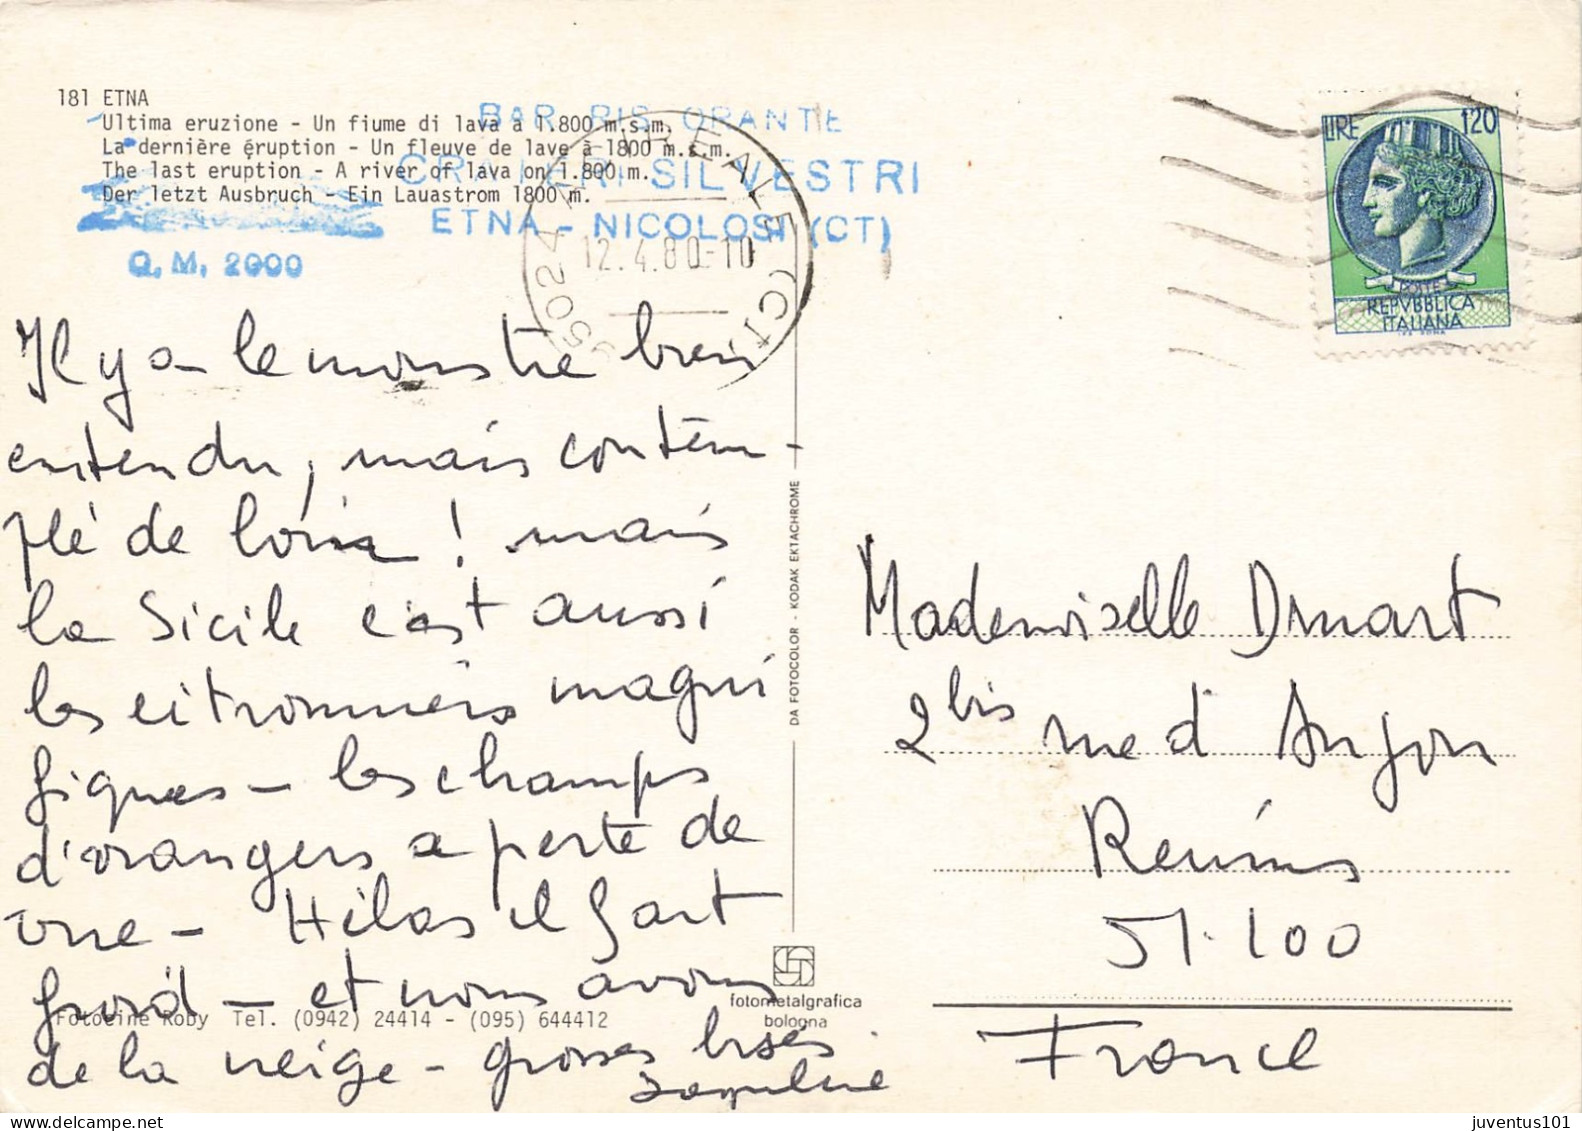 181 ETNA
Ultima eruzione - Un fiume di lava a 1.800 m.s.m.
La dernière éruption - Un fleuve de lave à 1800 m.s.m.
The last eruption - A river of lava on 1.800 m.
Der letzt Ausbruch - Ein Lauastrom 1800 m.
BAR RIS ORANTE
CRA IERI SILVESTRI
ETNA - NICOLOSI (CT)
Q.M. 2000
95024 ACIREALE (CT)
12.4.80-10
LIRE 120
POSTE
REPVBBLICA
ITALIANA
Il y a le monstre bien
entendu, mais contem-
plé de loin ! mais
la Sicile c'est aussi
les citronniers magni
fiques - les champs
d'orangers a perte de
vue - Hélas il fait
froid - et nous avons
de la neige - grosses bises.
Jacqueline
DA FOTOCOLOR - KODAK EKTACHROME
fotometalgrafica
bologna
Fotocine Roby Tel. (0942) 24414 - (095) 644412
Mademoiselle Druart
2 bis rue d'Anjou
Reims
51.100
France
juventus101